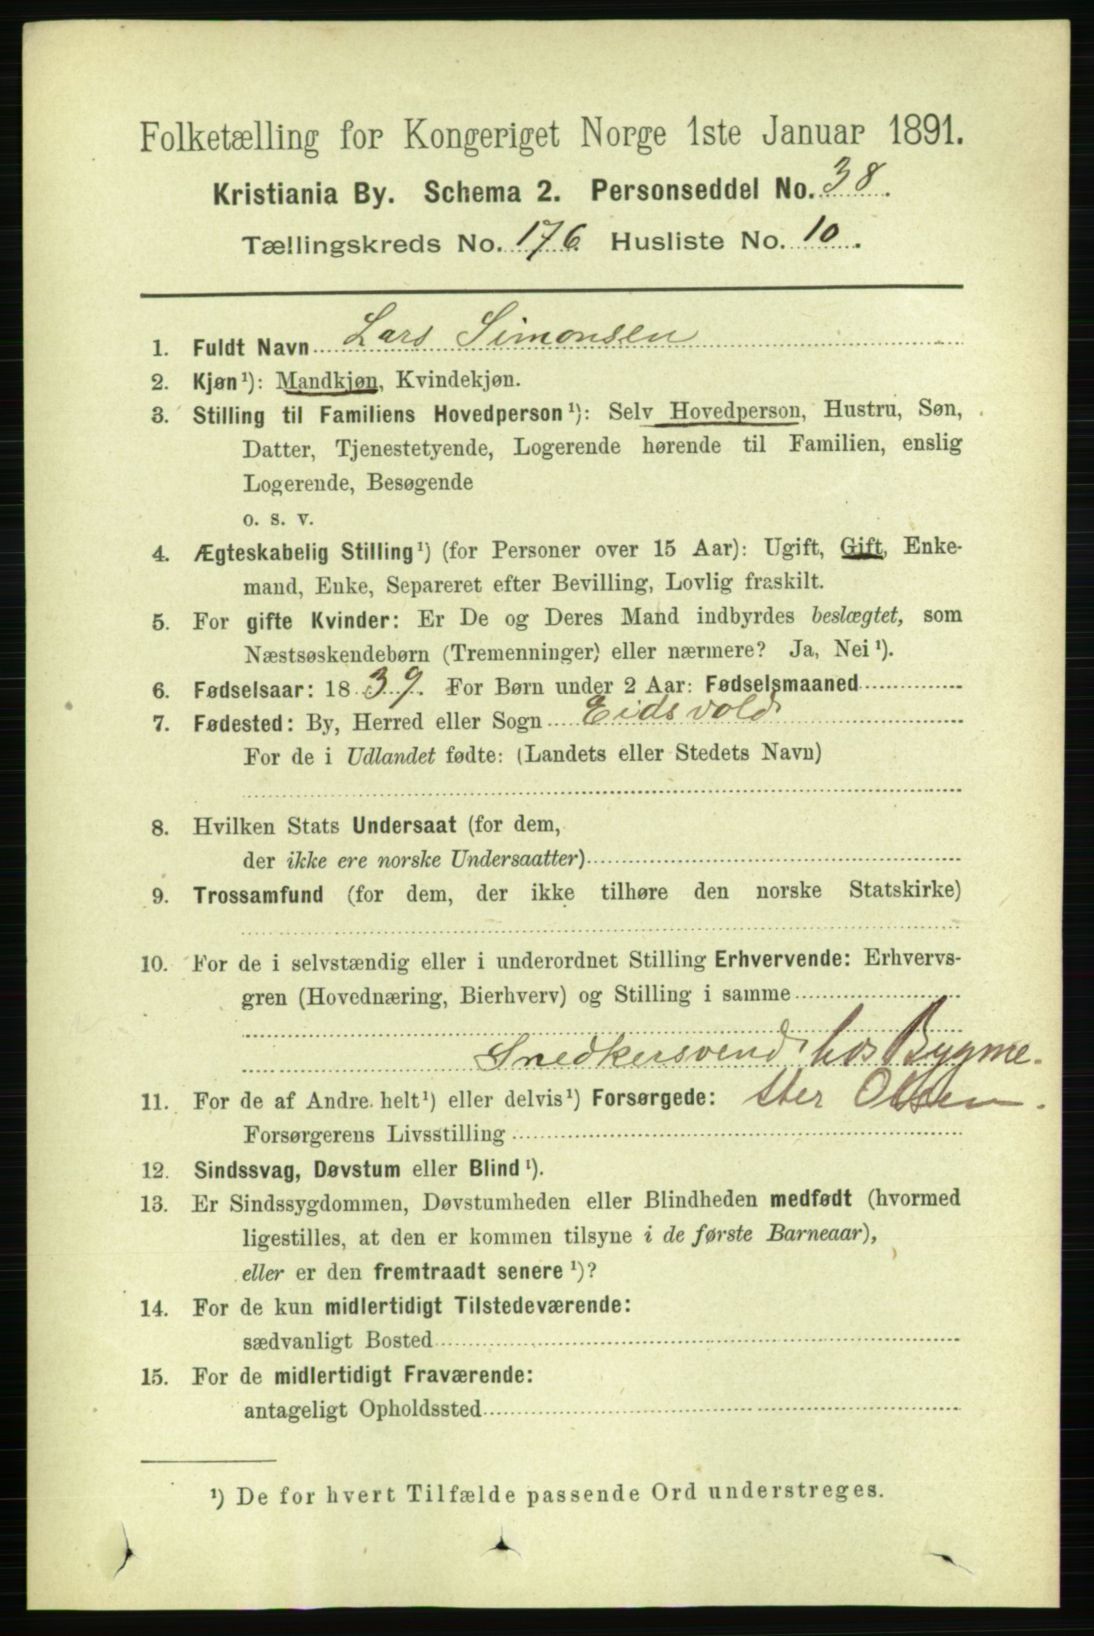 Folketælling for Kongeriget Norge 1ste Januar 1891.
Kristiania By. Schema 2. Personseddel No. 38.
Tællingskreds No. 176 Husliste No. 10.
1. Fuldt Navn Lars Simonsen
2. Kjøn¹): Mandkjøn, Kvindekjøn.
3. Stilling til Familiens Hovedperson¹): Selv Hovedperson, Hustru, Søn,
Datter, Tjenestetyende, Logerende hørende til Familien, enslig
Logerende, Besøgende
o. s. v.
4. Ægteskabelig Stilling¹) (for Personer over 15 Aar): Ugift, Gift, Enke-
mand, Enke, Separeret efter Bevilling, Lovlig fraskilt.
5. For gifte Kvinder: Er De og Deres Mand indbyrdes beslægtet, som
Næstsøskendebørn (Tremenninger) eller nærmere? Ja, Nei¹).
6. Fødselsaar: 1839. For Børn under 2 Aar: Fødselsmaaned
7. Fødested: By, Herred eller Sogn Eidsvold
For de i Udlandet fødte: (Landets eller Stedets Navn)
8. Hvilken Stats Undersaat (for dem,
der ikke ere norske Undersaatter)
9. Trossamfund (for dem, der ikke tilhøre den norske Statskirke)
10. For de i selvstændig eller i underordnet Stilling Erhvervende: Erhvervs-
gren (Hovednæring, Bierhverv) og Stilling i samme
Snedkersvend hos Bygme-
11. For de af Andre helt¹) eller delvis¹) Forsørgede: ster Olsen.
Forsørgerens Livsstilling
12. Sindssvag, Døvstum eller Blind¹).
13. Er Sindssygdommen, Døvstumheden eller Blindheden medfødt (hvormed
ligestilles, at den er kommen tilsyne i de første Barneaar),
eller er den fremtraadt senere¹)?
14. For de kun midlertidigt Tilstedeværende:
sædvanligt Bosted
15. For de midlertidigt Fraværende:
antageligt Opholdssted
¹) De for hvert Tilfælde passende Ord understreges.